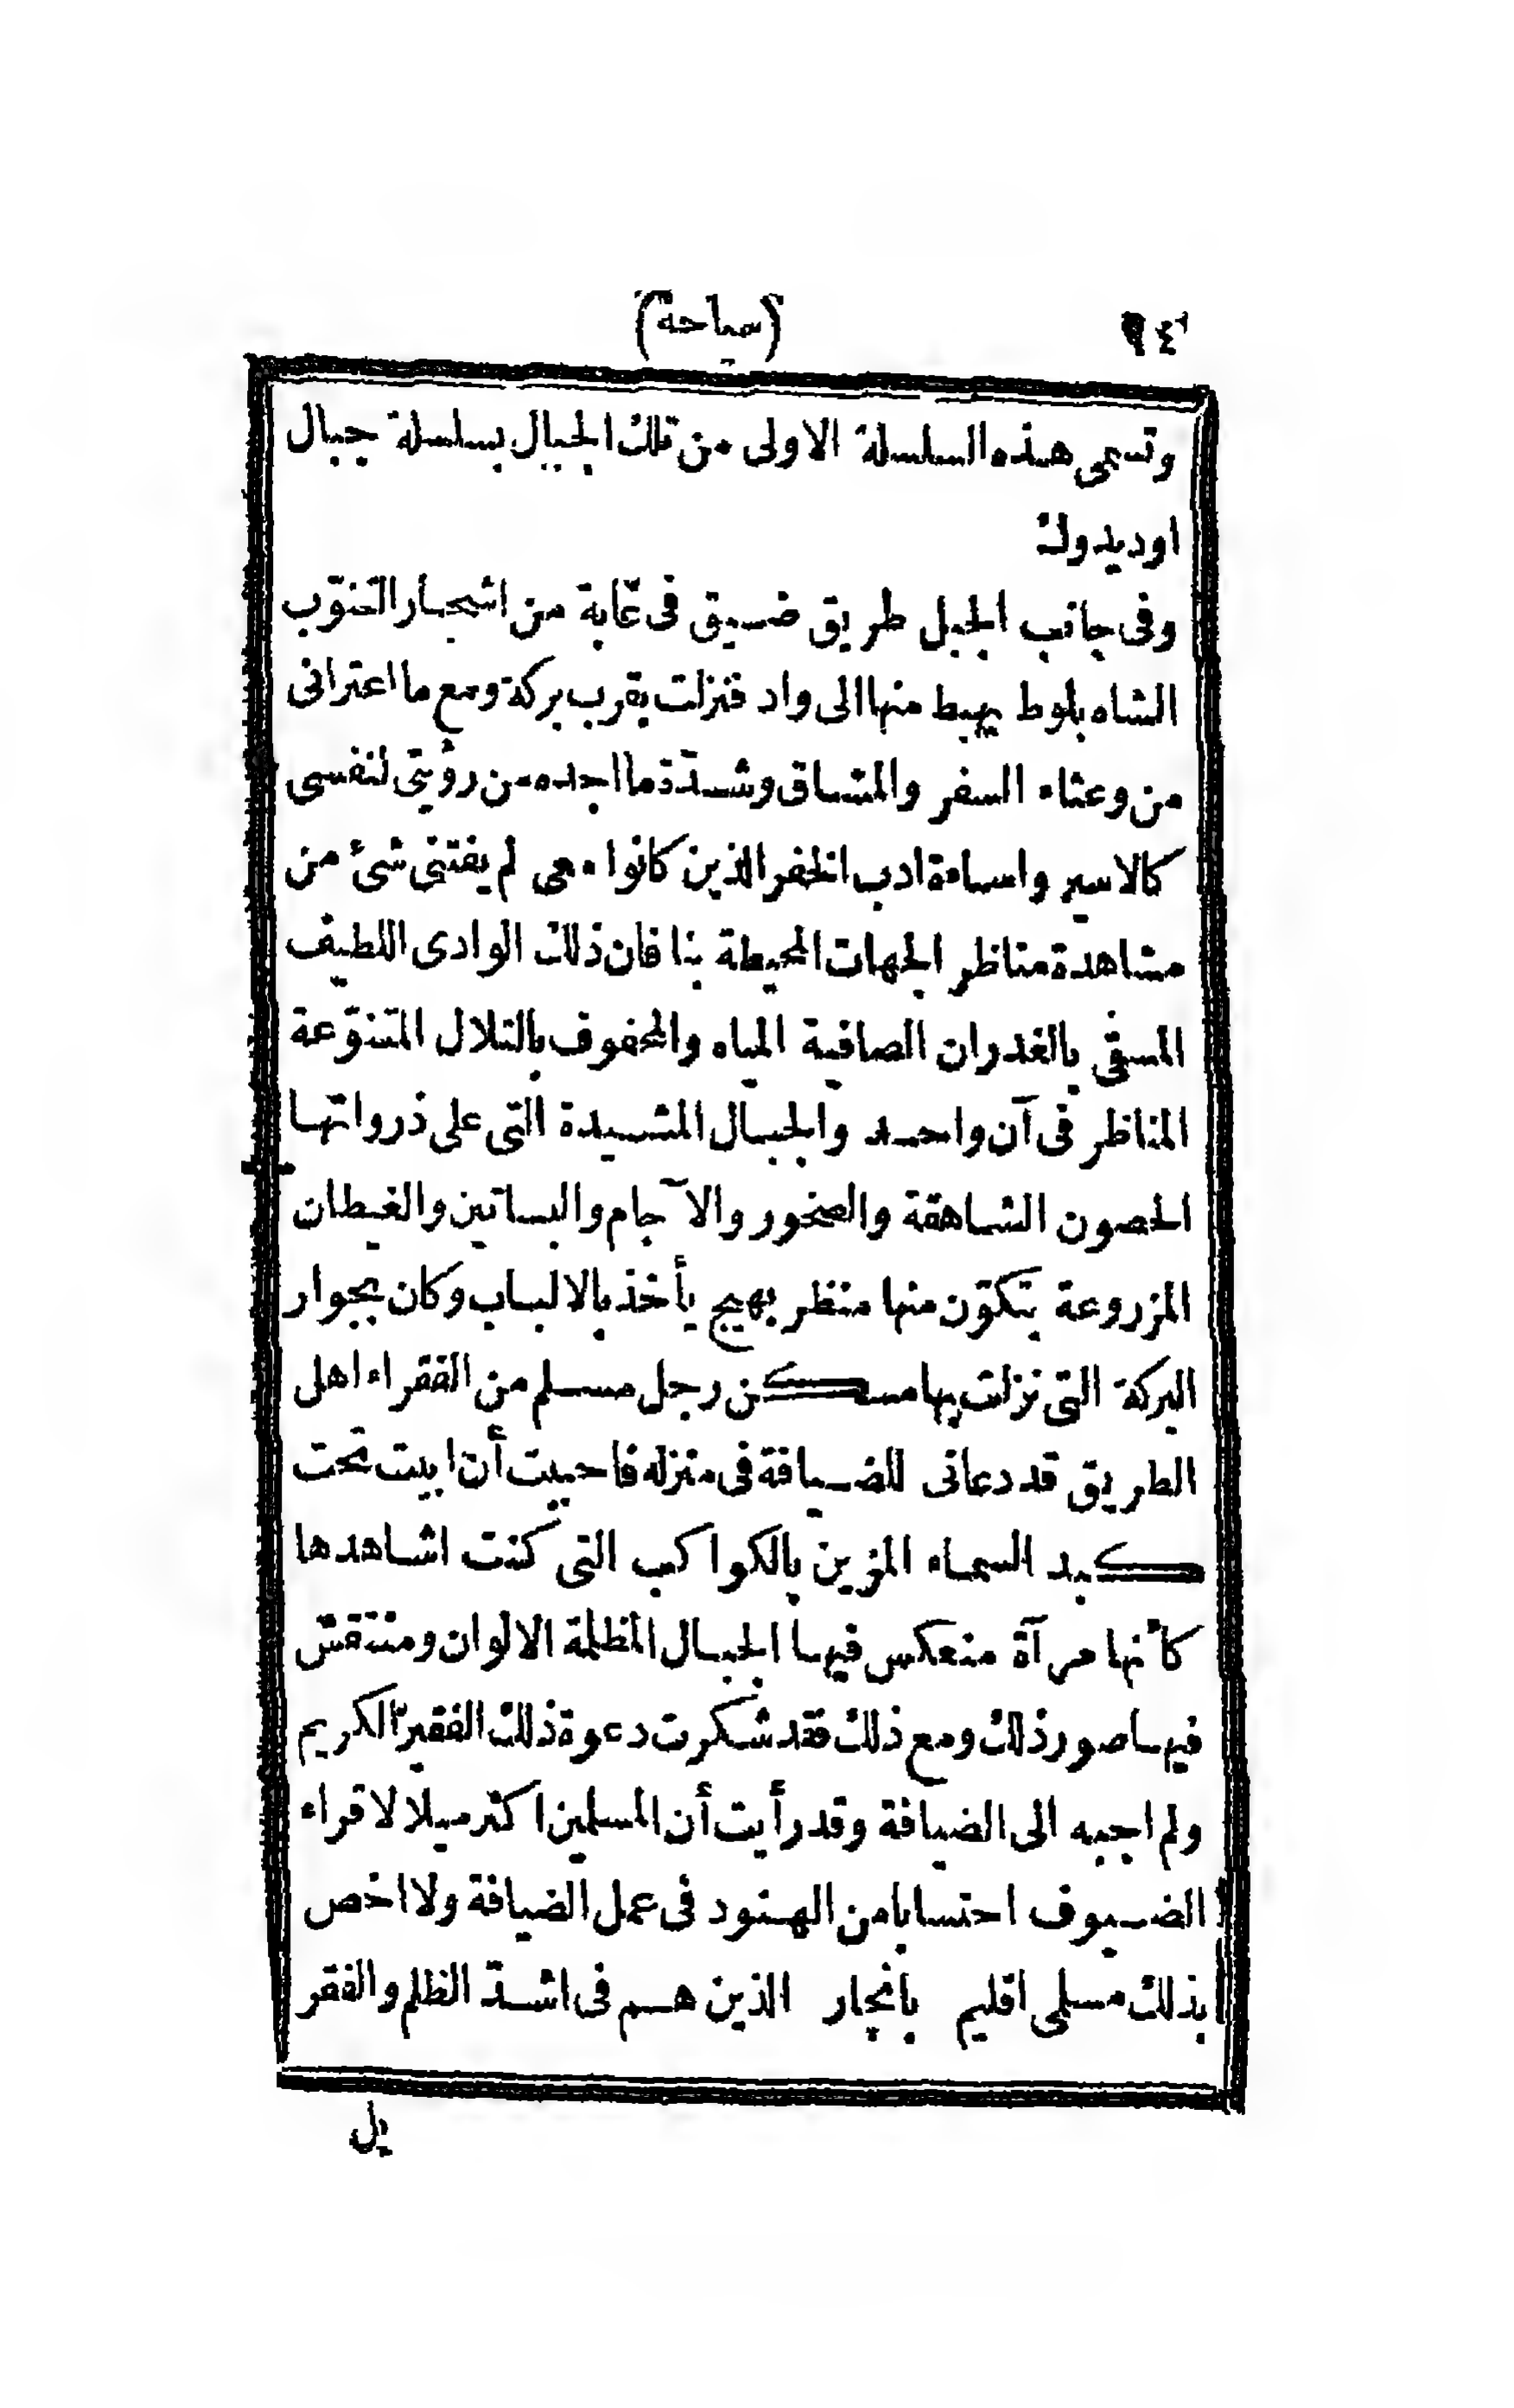 ٩٤ (سياحة)
وتسمى هذه السلسلة الاولى من تلك الجبال بسلسلة جبال
اوديدوك
وفى جانب الجبل طريق ضيق فى غابة من اشجار التنوّب
الشاه بلوط يهبط منها الى واد فنزلت بقرب بركة ومع ما اعترانى
من وعثاء السفر والمشاق وشدّة ما اجده من رؤيتى لنفسى
كالاسير واساءة ادب الخفر الذين كانوا معى لم يفتنى شئ من
مشاهدة مناظر الجهات المحيطة بنا فان ذلك الوادى اللطيف
المسقى بالغدران الصافية المياه والمحفوف بالتلال المتنوّعة
المناظر فى آن واحد والجبال المشيدة التى على ذرواتها
الحصون الشاهقة والصخور والآجام والبساتين والغيطان
المزروعة يتكوّن منها منظر بهيج يأخذ بالالباب وكان بجوار
البركة التى نزلت بها مسكن رجل مسلم من الفقراء اهل
الطريق قد دعانى للضيافة فى منزله فاحببت أن ابيت تحت
كبد السماء المزين بالكواكب التى كنت اشاهدها
كأنها مرآة منعكس فيها الجبال المظلمة الالوان ومنتقش
فيها صور ذلك ومع ذلك فقد شكرت دعوة ذلك الفقير الكريم
ولم اجبه الى الضيافة وقد رأيت أن المسلمين اكثر ميلا لاقراء
الضيوف احتسابا من الهنود فى عمل الضيافة ولا اخص
بذلك مسلمى اقليم بانجار الذين هم فى اشدّ الظلم والفقر
بل